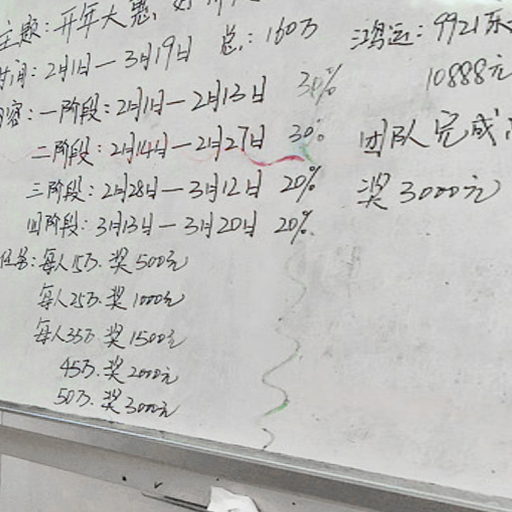 主题：开年大惠，好
时间：2月1日－3月19日 总：160万
内容：一阶段：2月1日－2月13日 30%
二阶段：2月14日－2月27日 30%
三阶段：2月28日－3月12日 20%
四阶段：3月13日－3月20日 20%
任务：每人15万．奖500元
每人25万．奖1000元
每人35万 奖1500元
45万．奖2000元
50万．奖3000元
鸿运：9921
10888元
团队完成
奖3000元